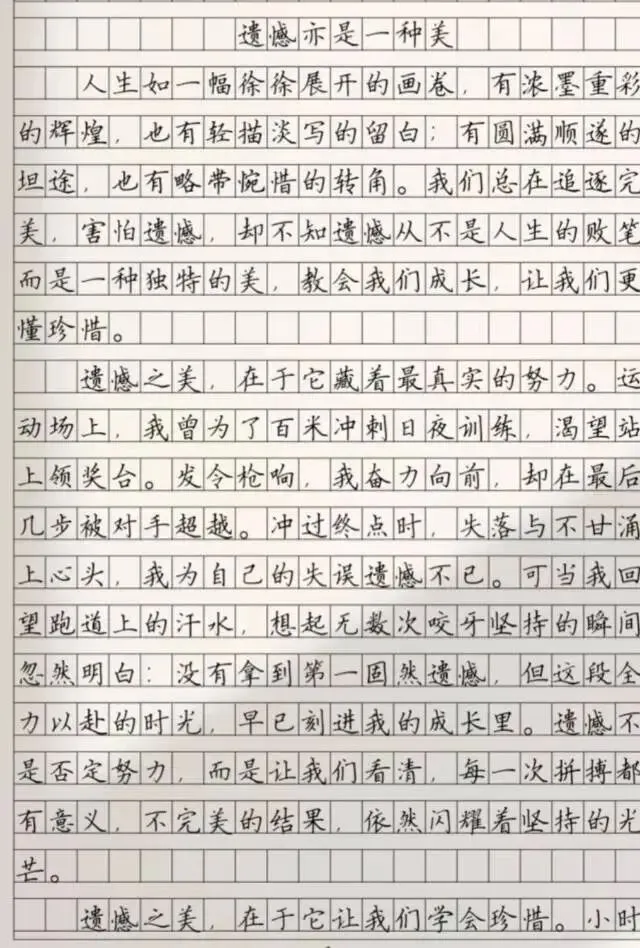 遗憾亦是一种美
人生如一幅徐徐展开的画卷，有浓墨重彩
的辉煌，也有轻描淡写的留白；有圆满顺遂的
坦途，也有略带惋惜的转角。我们总在追逐完
美，害怕遗憾，却不知遗憾从不是人生的败笔
而是一种独特的美，教会我们成长，让我们更
懂珍惜。
遗憾之美，在于它藏着最真实的努力。运
动场上，我曾为了百米冲刺日夜训练，渴望站
上领奖台。发令枪响，我奋力向前，却在最后
几步被对手超越。冲过终点时，失落与不甘涌
上心头，我为自己的失误遗憾不已。可当我回
望跑道上的汗水，想起无数次咬牙坚持的瞬间
忽然明白：没有拿到第一固然遗憾，但这段全
力以赴的时光，早已刻进我的成长里。遗憾不
是否定努力，而是让我们看清，每一次拼搏都
有意义，不完美的结果，依然闪耀着坚持的光
芒。
遗憾之美，在于它让我们学会珍惜。小时